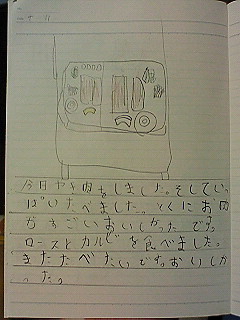 今日やき肉をしました。そしていっ
ぱいたべました。とくにお肉
がすごいおいしかったです。
ローストカルビを食べました。
またたべたいです。おいしか
った。